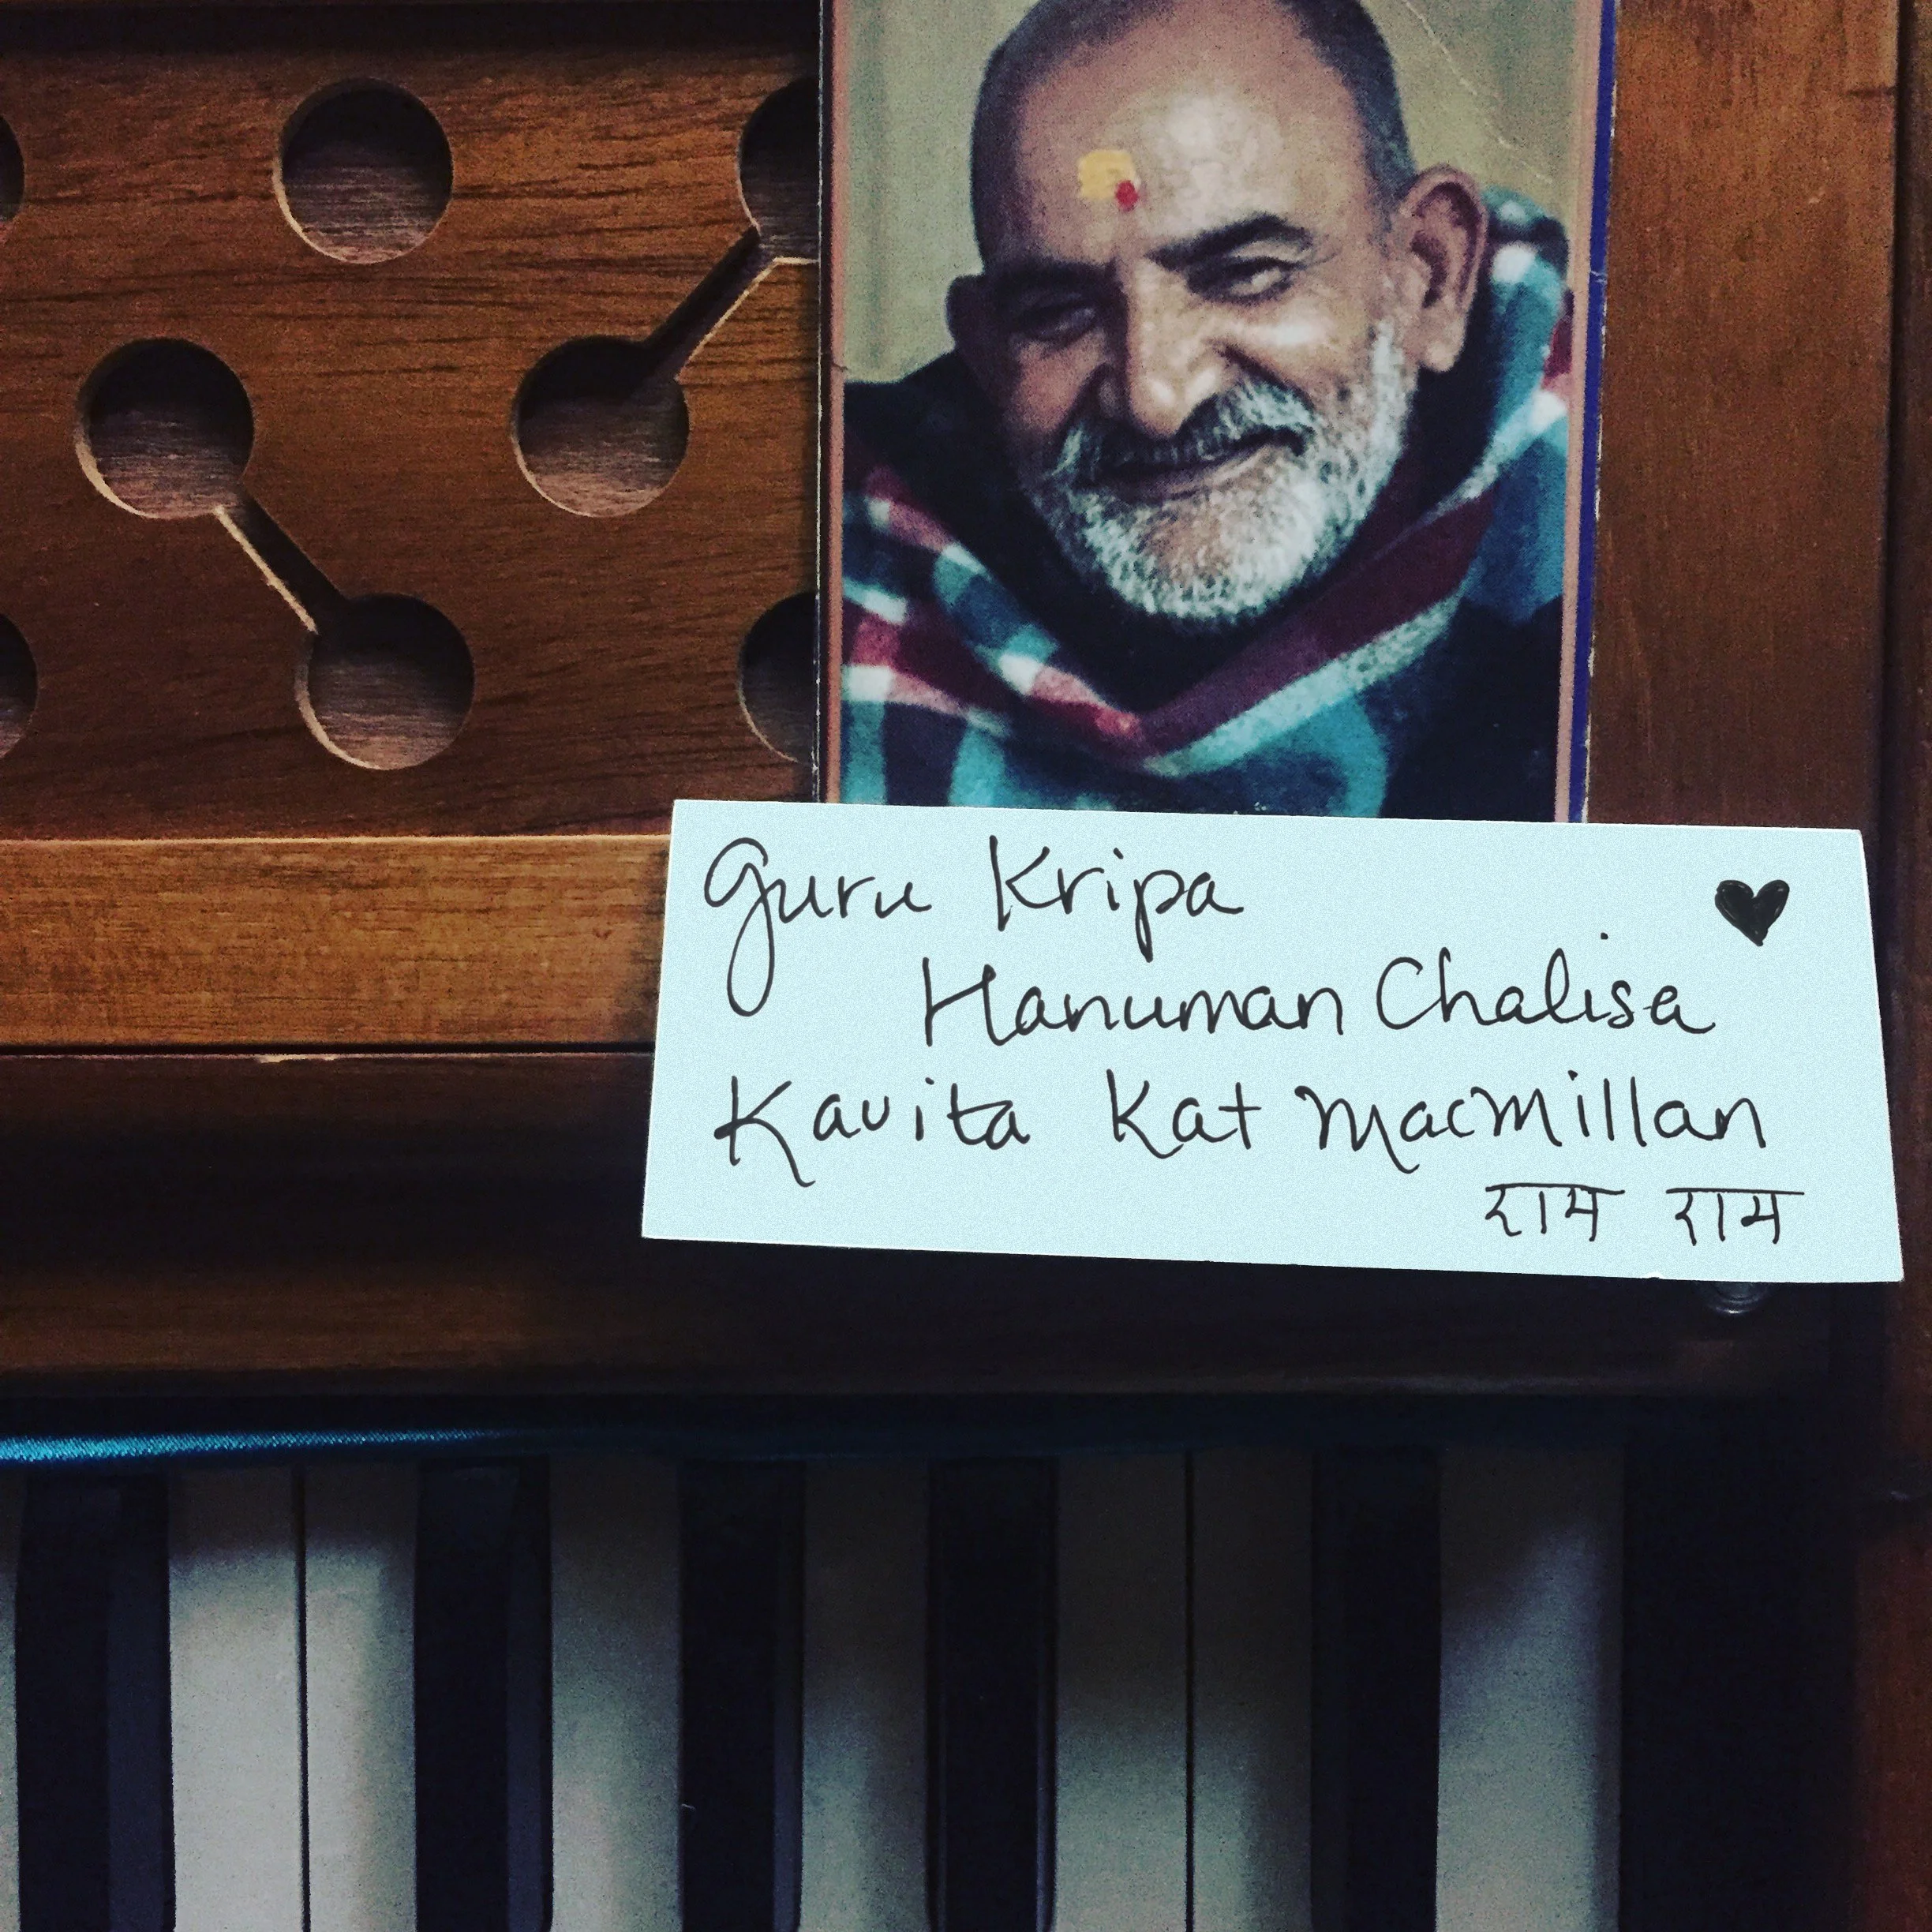 Guru Kripa ♥
Hanuman Chalisa
Kavita Kat Macmillan
राम राम